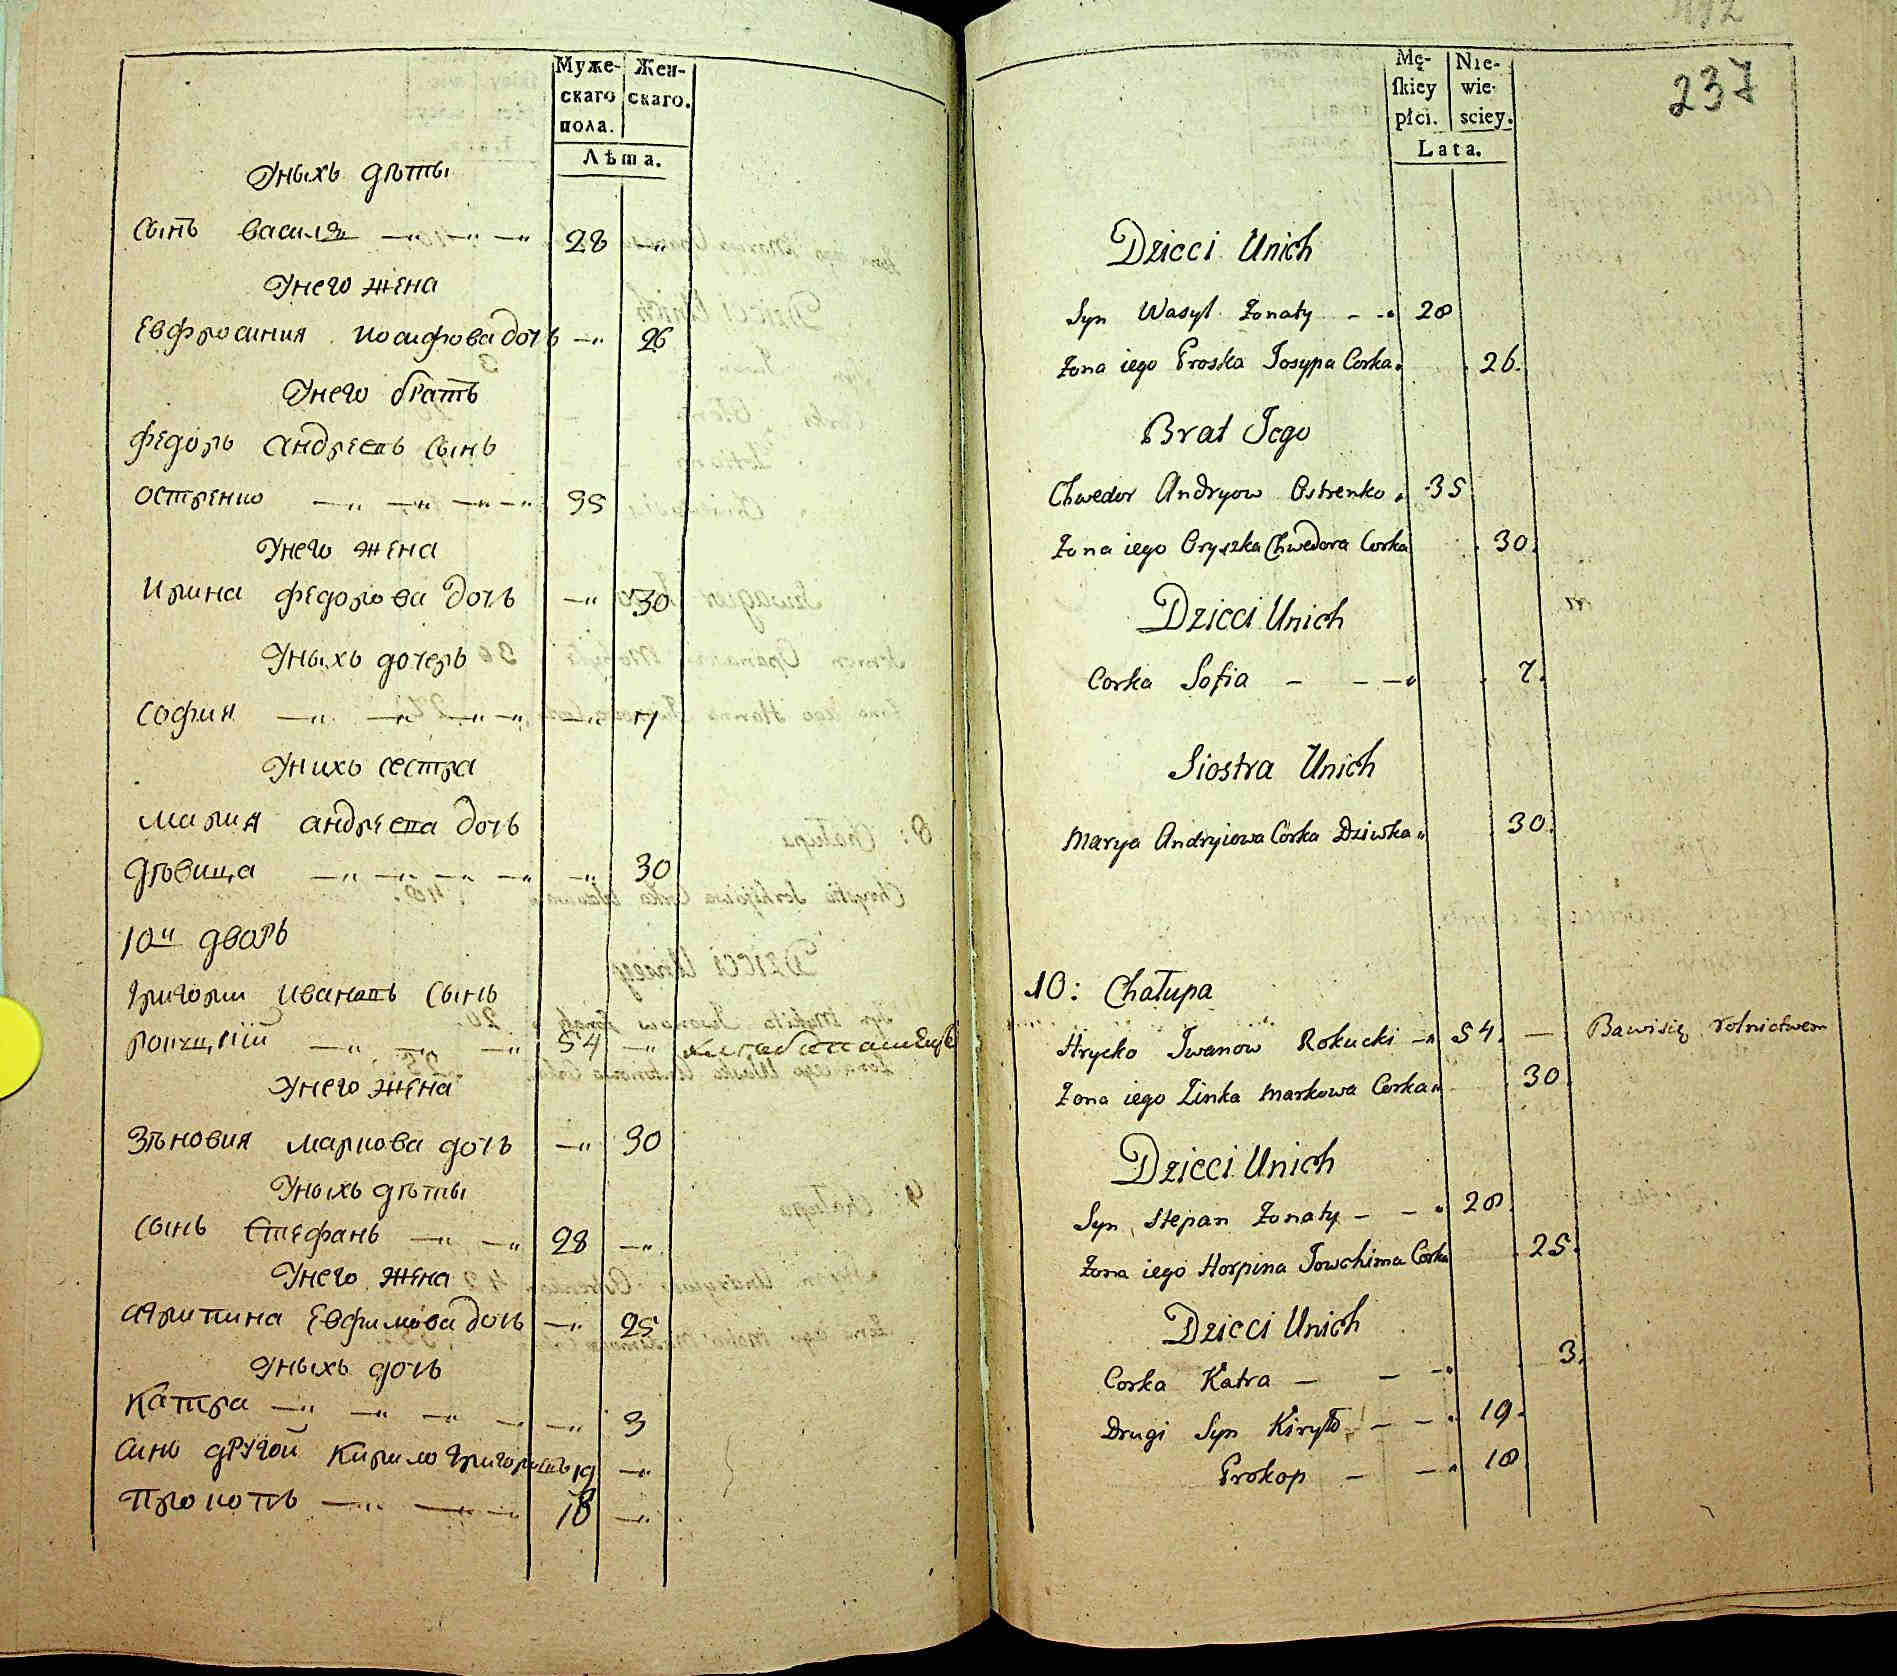 Муже-
скаго
пола.
Жен-
скаго.
Лѣта.
Уныхъ дѣтѣы
Сынъ василя — — — 28 —
Унего жена
Евфросиния иосифова дочъ — 26
Унего братъ
Федоръ андреевъ сынъ
остренко — — — — 35
Унего жена
ирина федорова дочъ — 30
Уныхъ дочеръ
София — — — — — 7
Унихъ сестра
мария андреева дочъ
дѣвица — — — — — 30
10й дворъ
Григории ивановъ сынъ
рокуцкій — — — 54 —
Унего жена
Зѣновия маркова дочъ — 30
Уныхъ дѣты
сынъ Стефанъ — — 28 —
Унего жена
агрипина Евфимова дочъ — 25
Уныхъ дочъ
Катра — — — — — 3
синъ другой Кирило Григориевъ 19 —
Прокопъ — — — 18 —
237
Mę-
skiey
płci.
Nie-
wie-
sciey.
Lata.
Dzieci Unich
Syn Wasyl Żonaty - - 28
Żona iego Proska Josypa Corka. 26.
Brat Jego
Chwedor Andryow Ostrenko 35
Żona iego Oryszka Chwedora Corka 30.
Dzieci Unich
Corka Sofia - - - 7.
Siostra Unich
Marya Andryiowa Córka Dziwka 30.
10: Chałupa
Hrycko Iwanow Rokucki - 54. — Bawisię rolnictwem
Żona iego Zinka Markowa Corka 30.
Dzieci Unich
Syn Stepan Żonaty - - 28.
Żona iego Horpina Jowchima Corka 25.
Dzieci Unich
Corka Katra - - - 3.
Drugi Syn Kiryło - - 19.
Prokop - - 18